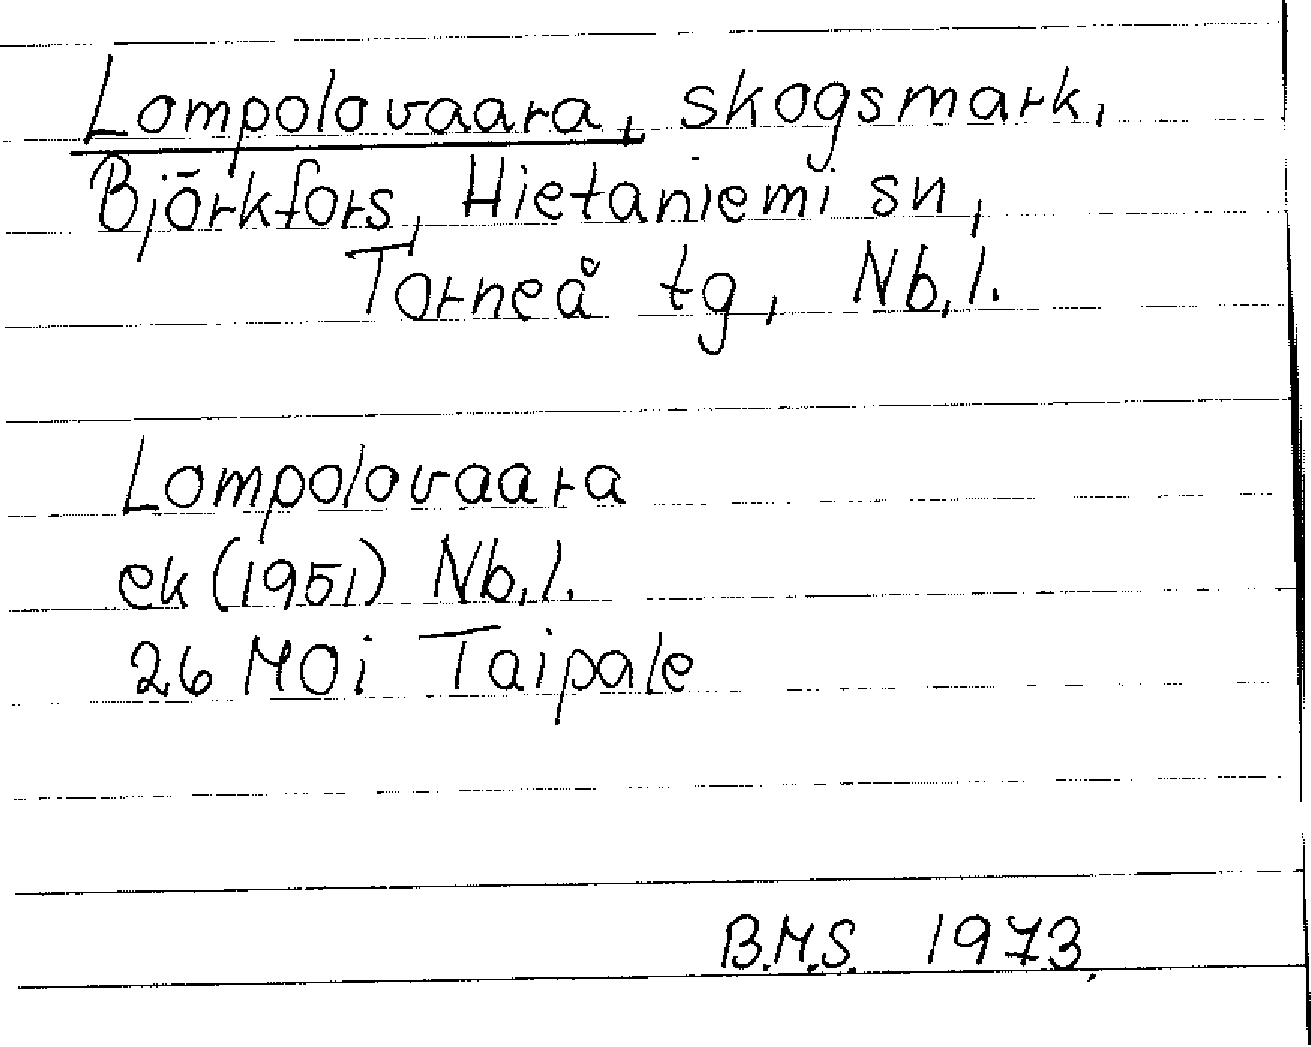 Lompolovaara, skogsmark,
Björkfors, Hietaniemi sn,
Torneå tg, Nb,l.
Lompolovaara
ek (1951) Nb,l.
26 MOi Taipale
B.M.S. 1973